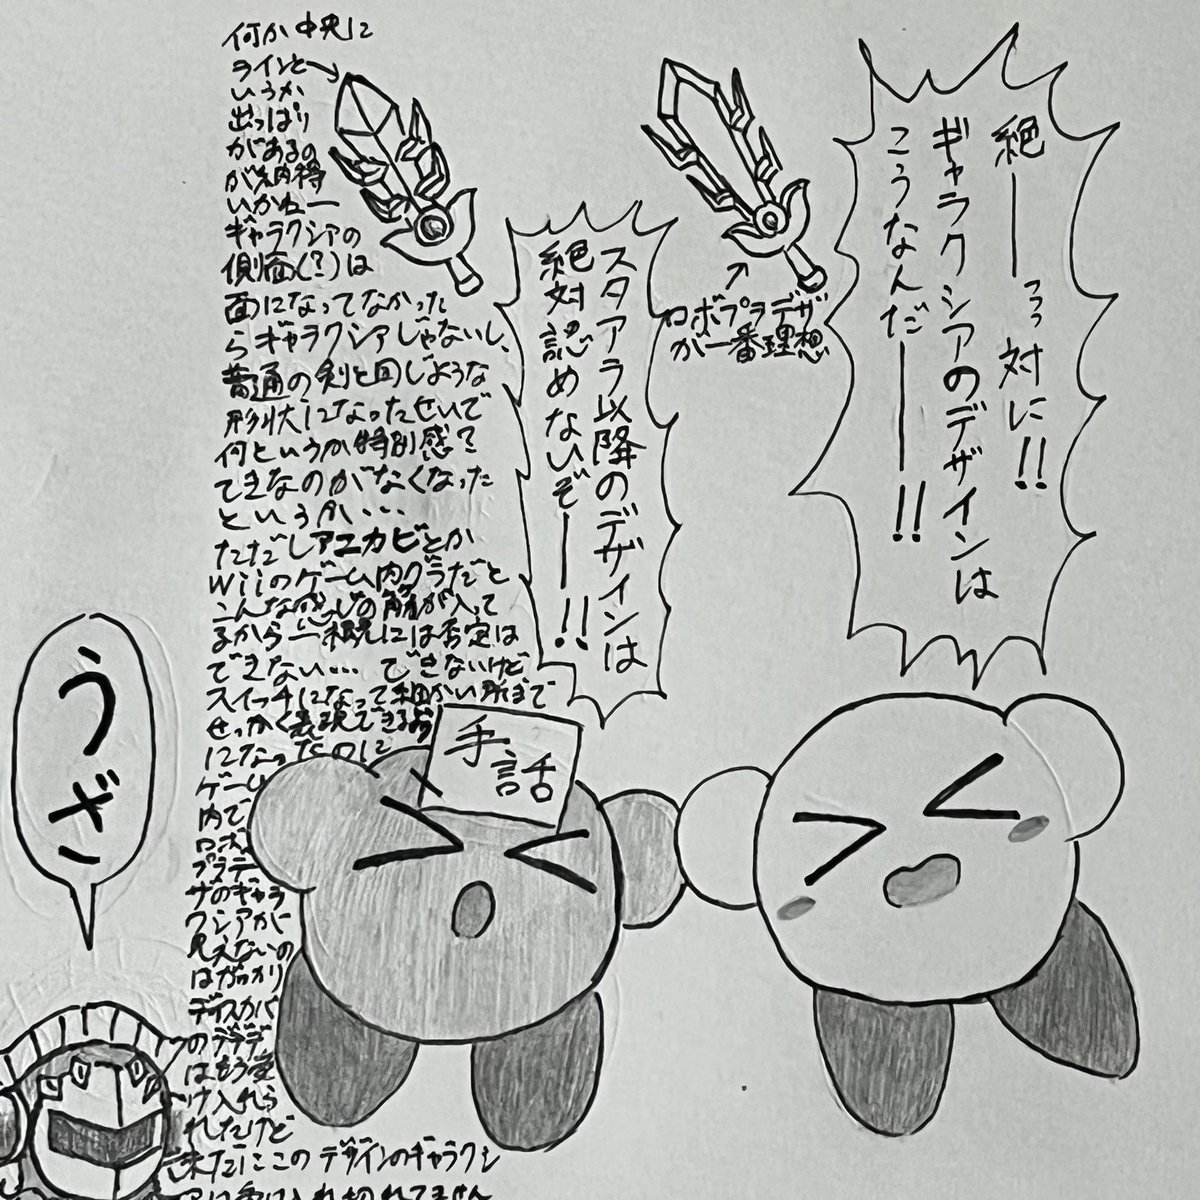 絶ーーっっっ対に!!
ギャラクシアのデザインは
こうなんだーーー!!
ロボプラデザ
が一番理想
スタアラ以降のデザインは
絶対認めないぞーー!!
何か中央に
ラインと
いうか
出っぱり
があるの
が納得
いかねー
ギャラクシアの
側面(?)は
面になってなかった
らギャラクシアじゃないし、
普通の剣と同じような
形状になったせいで
何というか特別感?
てきなのがなくなった
というか・・・
ただしアニカビとか
wiiのゲーム内グラだと
こんな感じの筋が入って
るから一概には否定は
できない・・・できないけど
スイッチになって細かい所まで
せっかく表現できるよう
になったのに
ゲーム
内で
ロボ
プラデ
ザのギャラ
クシアが
見えないの
はがっかり
ディスカバ
のデデデ
はもう受
け入れら
れたけど
未だにこのデザインのギャラクシ
アは受け入れ切れてません
手
話
うざ